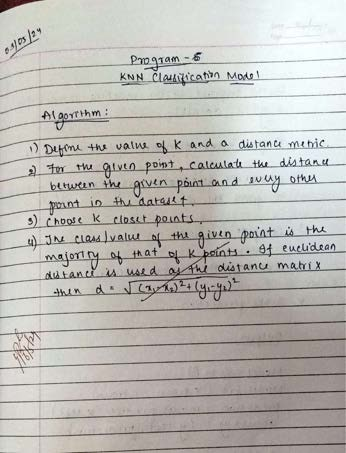 Program - 5
KNN Classification Model
Algorithm :
1) Define the value of K and a distance metric.
2) For the given point, calculate the distance
between the given point and every other
point in the dataset.
3) Choose K closet points.
4) The class/value of the given point is the
majority of that of K points. If euclidean
distance is used as the distance matrix
then d = √(x₁-x₂)²+(y₁-y₂)²